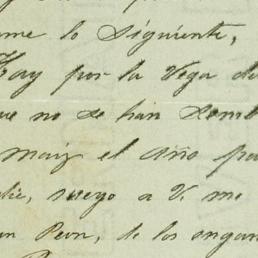 me lo siguiente,
Hay por la Vega de
que no se han semb
maiz el año pa
die, ruego a V. me
un Peon, de los